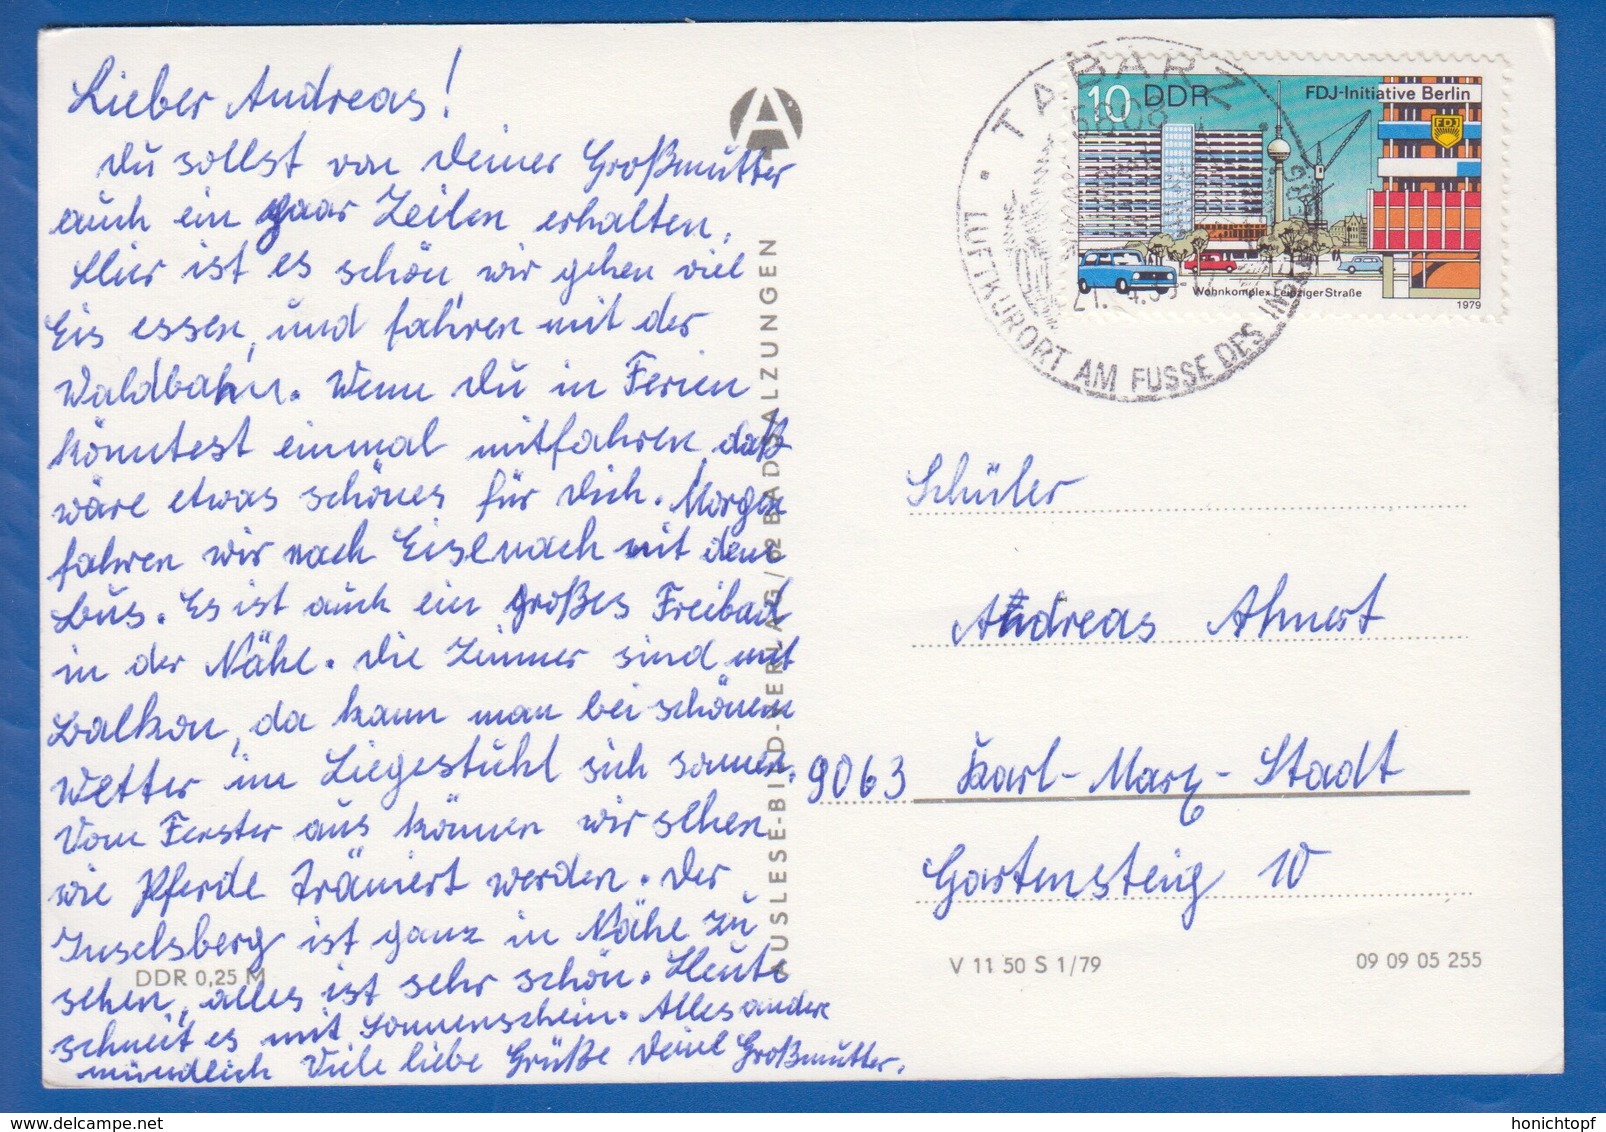 Lieber Andreas!
Du sollst von Deiner Großmutter
auch ein paar Zeilen erhalten.
Hier ist es schön, wir gehen viel
Eis essen, und fahren mit der
Waldbahn. Wenn Du in Ferien
könntest einmal mitfahren, daß
wäre etwas schönes für Dich. Morgen
fahren wir nach Eisenach mit dem
Bus. Es ist auch ein großes Freibad
in der Nähe. Die Zimmer sind mit
Balkon, da kann man bei schönem
Wetter im Liegestühl sich sonnen.
Vom Fenster aus können wir sehen
wie Pferde trämiert werden. Der
Inselsberg ist ganz in Nähe zu
sehen, alles ist sehr schön. Heute
schneit es mit Sonnenschein. Alles andere
mündlich Viele liebe Grüße Deine Großmutter.
DDR 0,25 M
A
AUSLESE-BILD-VERLAG/62 BAD SALZUNGEN
TABARZ
5808
LUFTKURORT AM FUSSE DES
10 DDR
FDJ-Initiative Berlin
FDJ
Wohnkomplex Leipziger Straße
1979
Schüler
Andreas Ahnert
9063 Karl-Marx-Stadt
Gartensteig 10
V 11 50 S 1/79
09 09 05 255
honichtopf